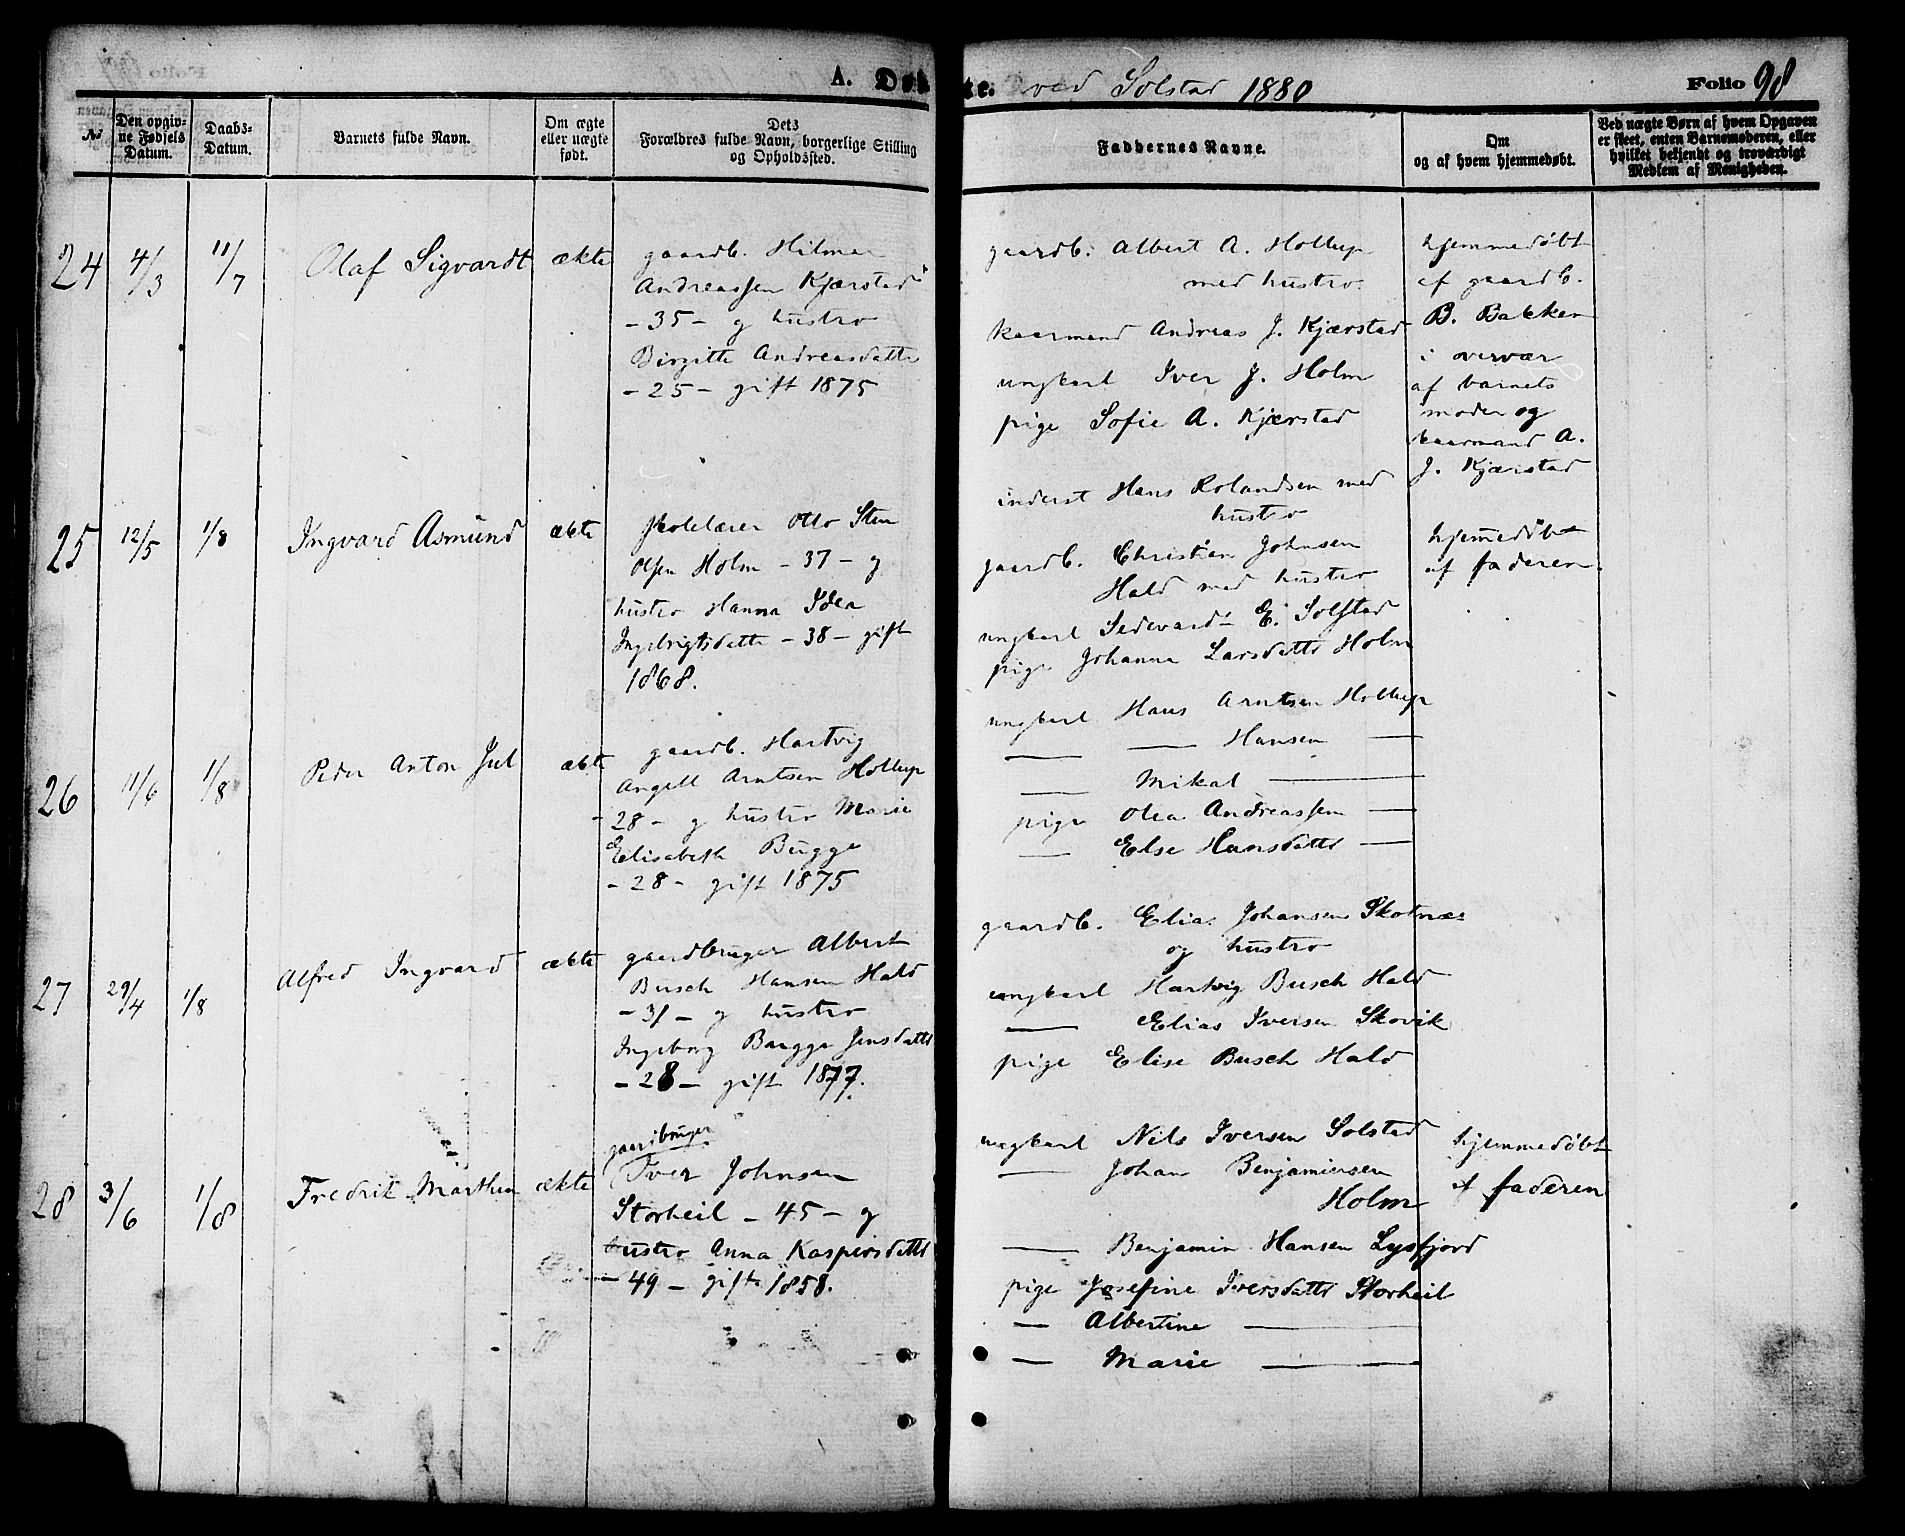 A. Døbte. ved Solstad 1880 Folio 98
№
Den opgiv-
ne Fødsels
Datum.
Daabs-
Datum.
Barnets fulde Navn.
Om ægte
eller uægte
født.
Dets
Forældres fulde Navn, borgerlige Stilling
og Opholdssted.
Faddernes Navne.
Om
og af hvem hjemmedøbt.
Ved uægte Børn af hvem Opgaven
er skeet, enten Barnemoderen, eller
hvilket bekjendt og troværdigt
Medlem af Menigheden.
24 4/3 11/7 Olaf Sigvardt ækte
gaardb. Hilmar
Andreassen Kjærstad
- 35 - g hustro
Birgitte Andreasdatte
- 25 - gift 1875
gaardb. Albert A. Hollup
med hustro.
kaarmand Andreas J. Kjærstad
ungkarl Iver J. Holm
pige Sofie A. Kjærstad
hjemmedøbt
af gaardb.
B. Bakken
i overvær
af barnets
moder og
kaarmand A.
J. Kjærstad
25 12/5 1/8 Ingvard Asmund ækte
skolelærer Otto Sten
Olsen Holm - 37 - g
hustro Hanna Idea
Ingebrigtsdatte - 38 - gift
1868.
inderst Hans Rolandsen med
hustro
gaardb. Christian Johnsen
Hald med hustro
ungkarl Sedevard E. Solstad
pige Johanna Larsdatte Holm
hjemmedøbt
af faderen.
26 11/6 1/8 Peder Anton Jul ækte
gaardb. Hartvig
Angell Arntsen Hollup
- 28 - g hustro Marie
Elisabeth Bugge
- 28 - gift 1875
ungkarl Hans Arntsen Hollup
— — Hansen —
— Mikal —
pige Olea Andreassen —
— Else Hansdatte —
27 29/4 1/8 Alfred Ingvard ækte
gaardbruger Albert
Busch Hansen Hald
- 31 - g hustro
Ingeborg Baugge Jensdatte
- 28 - gift 1877.
gaardb. Elias Johansen Skotnæs
og hustro
ungkarl Hartvig Busch Hald
— Elias Iversen Skovik
pige Elise Busch Hald
28 3/6 1/8 Fredrik Marthin ækte
gaardbruger
Iver Johnsen
Storheil - 45 - g
hustro Anna Kaspersdatte
- 49 - gift 1858.
ungkarl Nils Iversen Solstad
— Johan Benjaminsen
Holm
— Benjamin Hansen Lysfjord
pige Josefine Iversdatte Storheil
— Albertine —
— Marie —
hjemmedøbt
af faderen